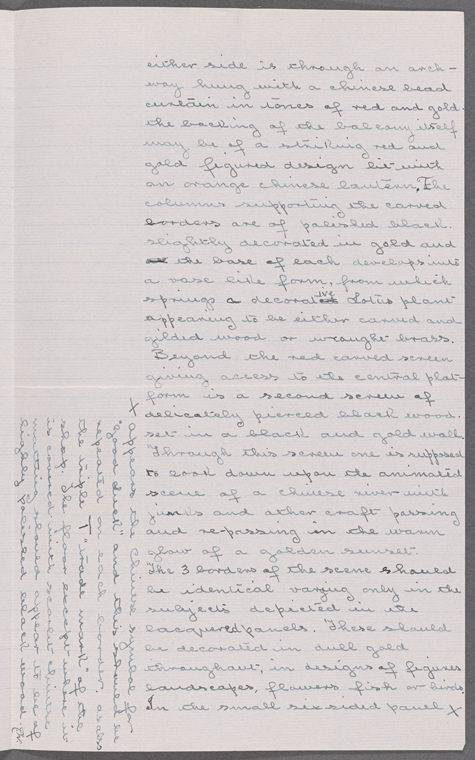 either side is through an arch-
way hung with a chinese bead
curtain in tones of red and gold.
the backing of the balcony itself
may be of a striking red and
gold figured design lit with
an orange chinese lantern, The
columns supporting the carved
borders are of polished black.
slightly decorated in gold and
the base of each develops into
a vase like form, from which
springs a decorative Lotus plant
appearing to be either carved and
gilded wood or wrought brass.
Beyond the red carved screen
giving access to the central plat-
form is a second screen of
delicately pierced black wood.
set in a black and gold wall.
Through this screen one is supposed
to look down upon the animated
scene of a chinese river with
junks and other craft passing
and re-passing in the warm
glow of a golden sunset.
The 3 borders of the scene should
be identical varying only in the
subjects depicted in the
lacquered panels. These should
be decorated in dull gold
throughout, in designs of figures
landscapes, flowers fish or birds.
In the small six sided panel x
x appears the Chinese symbol for
"good luck" and this should be
repeated on each border. as also
the triple T "trade mark" of the
shop. The floor except where it
is covered with scarlet chinese
matting should appear to be of
highly polished black wood